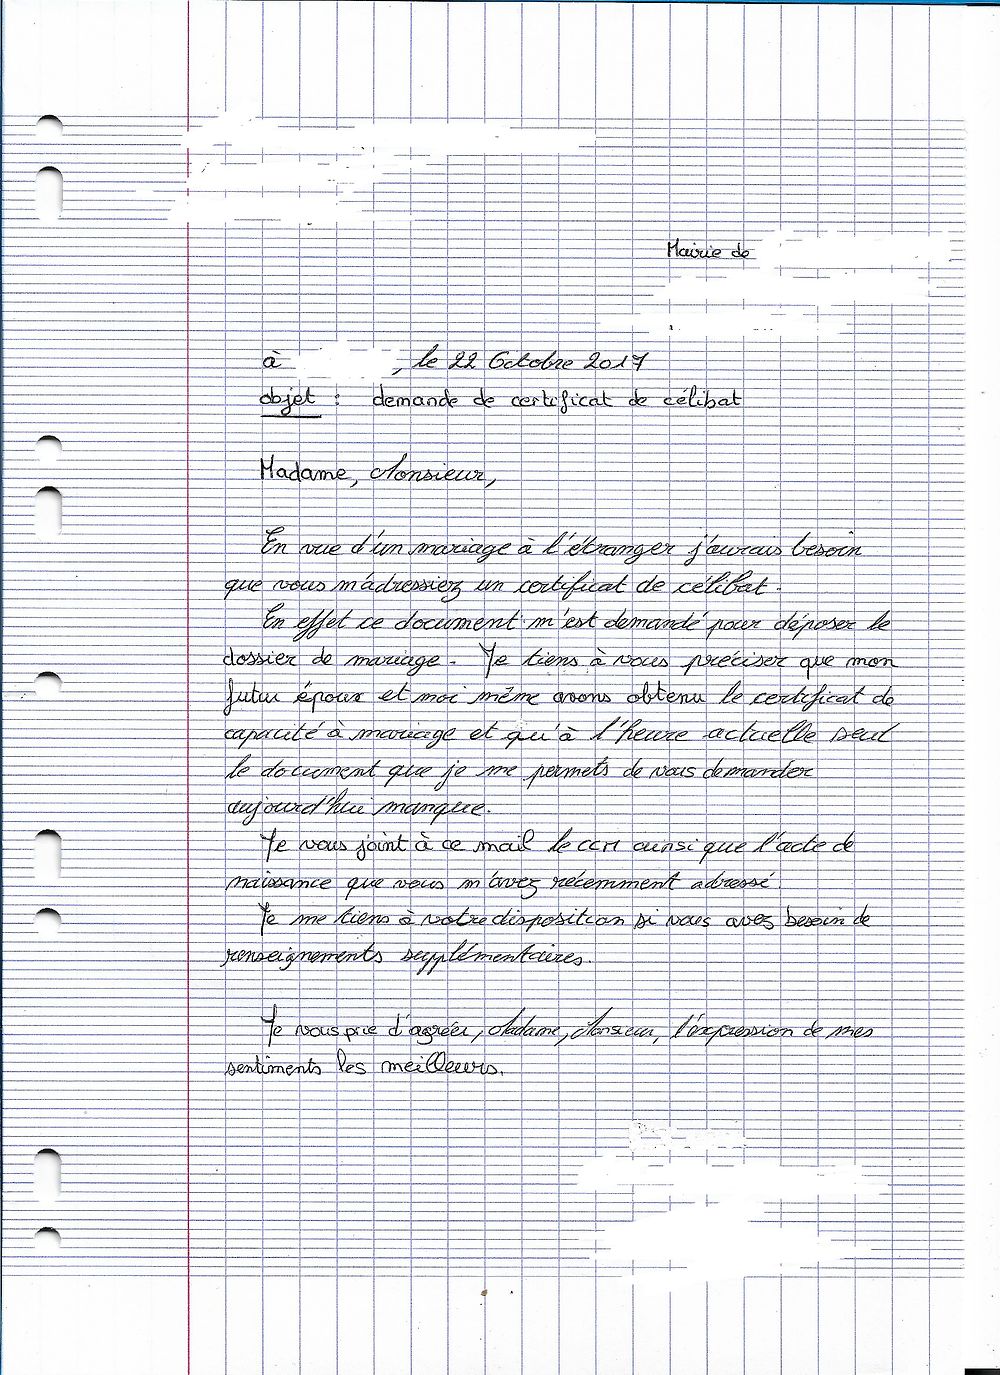 Mairie de
à , le 22 Octobre 2017
objet : demande de certificat de célibat
Madame, Monsieur,
En vue d'un mariage à l'étranger j'aurais besoin
que vous m'adressiez un certificat de célibat.
En effet ce document m'est demandé pour déposer le
dossier de mariage. Je tiens à vous préciser que mon
futur époux et moi même avons obtenu le certificat de
capacité à mariage et qu'à l'heure actuelle seul
le document que je me permets de vous demander
aujourd'hui manque.
Je vous joint à ce mail le ccm ainsi que l'acte de
naissance que vous m'avez récemment adressé.
Je me tiens à votre disposition si vous avez besoin de
renseignements supplémentaires.
Je vous prie d'agréer, Madame, Monsieur, l'expression de mes
sentiments les meilleurs.